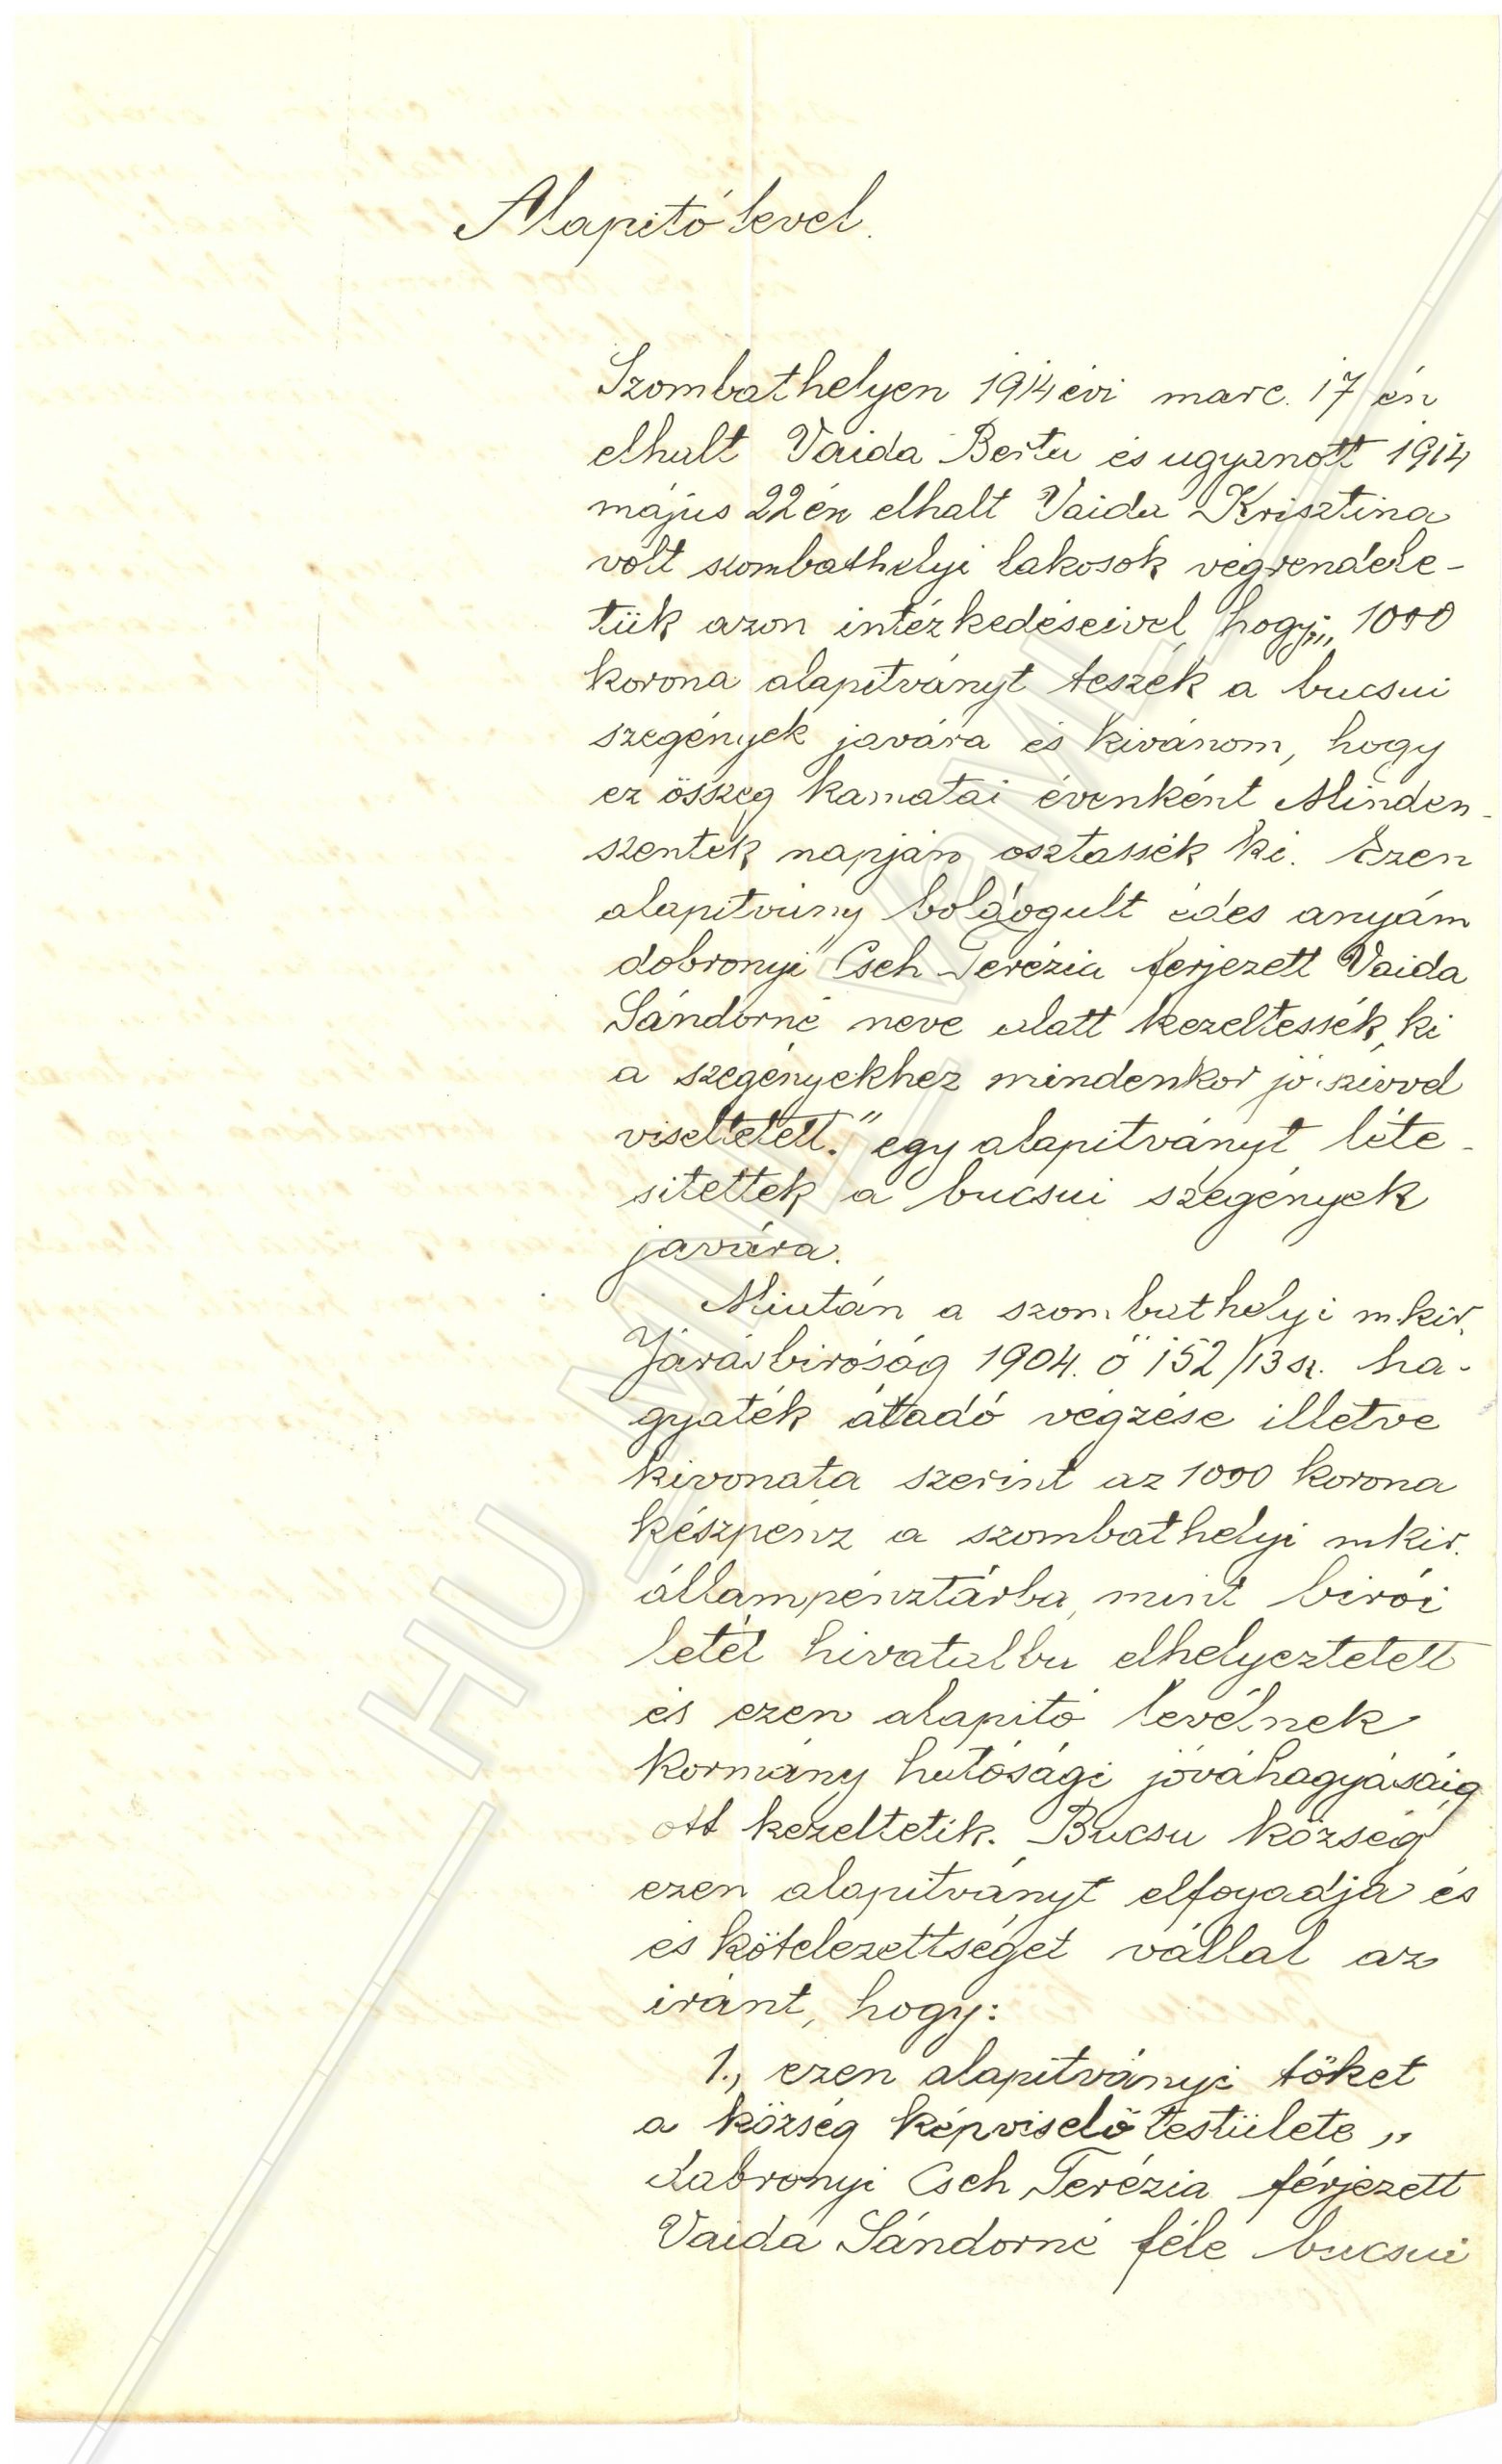 Alapító level.
Szombathelyen 1914 évi marc. 17 én
elhalt Vaida Berta és ugyanott 1914
május 22 én elhalt Vaida Krisztina
volt szombathelyi lakosok végrendele-
tük azon intézkedéseivel, hogy „ 1000
korona alapítványt teszek a bucsui
szegények javára és kivánom, hogy
ez összeg kamatai évenként Minden-
szentek napján osztassék ki. Ezen
alapítvány boldogult édes anyám
dobronyi Cseh Terézia férjezett Vaida
Sándorné neve alatt kezeltessék, ki
a szegényekhez mindenkor jó szivvel
viseltetett.“ egy alapítványt léte-
sitettek a bucsui szegények
javára.
Miután a szombathelyi mkir.
Járásbiróság 1904. Ö 152/13 sz. ha-
gyaték átadó végzése illetve
kivonata szerint az 1000 korona
készpénz a szombathelyi mkir.
állampénztárba, mint birói
letét hivatalba elhelyeztetett
és ezen alapító levélnek
kormány hatósági jóváhagyásáig
ott kezeltetik. Bucsu község
ezen alapítványt elfogadja és
és kötelezettséget vállal az
iránt, hogy:
1., ezen alapítványi tőket
a község képviselő testülete „
dabronyi Cseh Terézia férjezett
Vaida Sándorné féle bucsui
HU MNL VaML